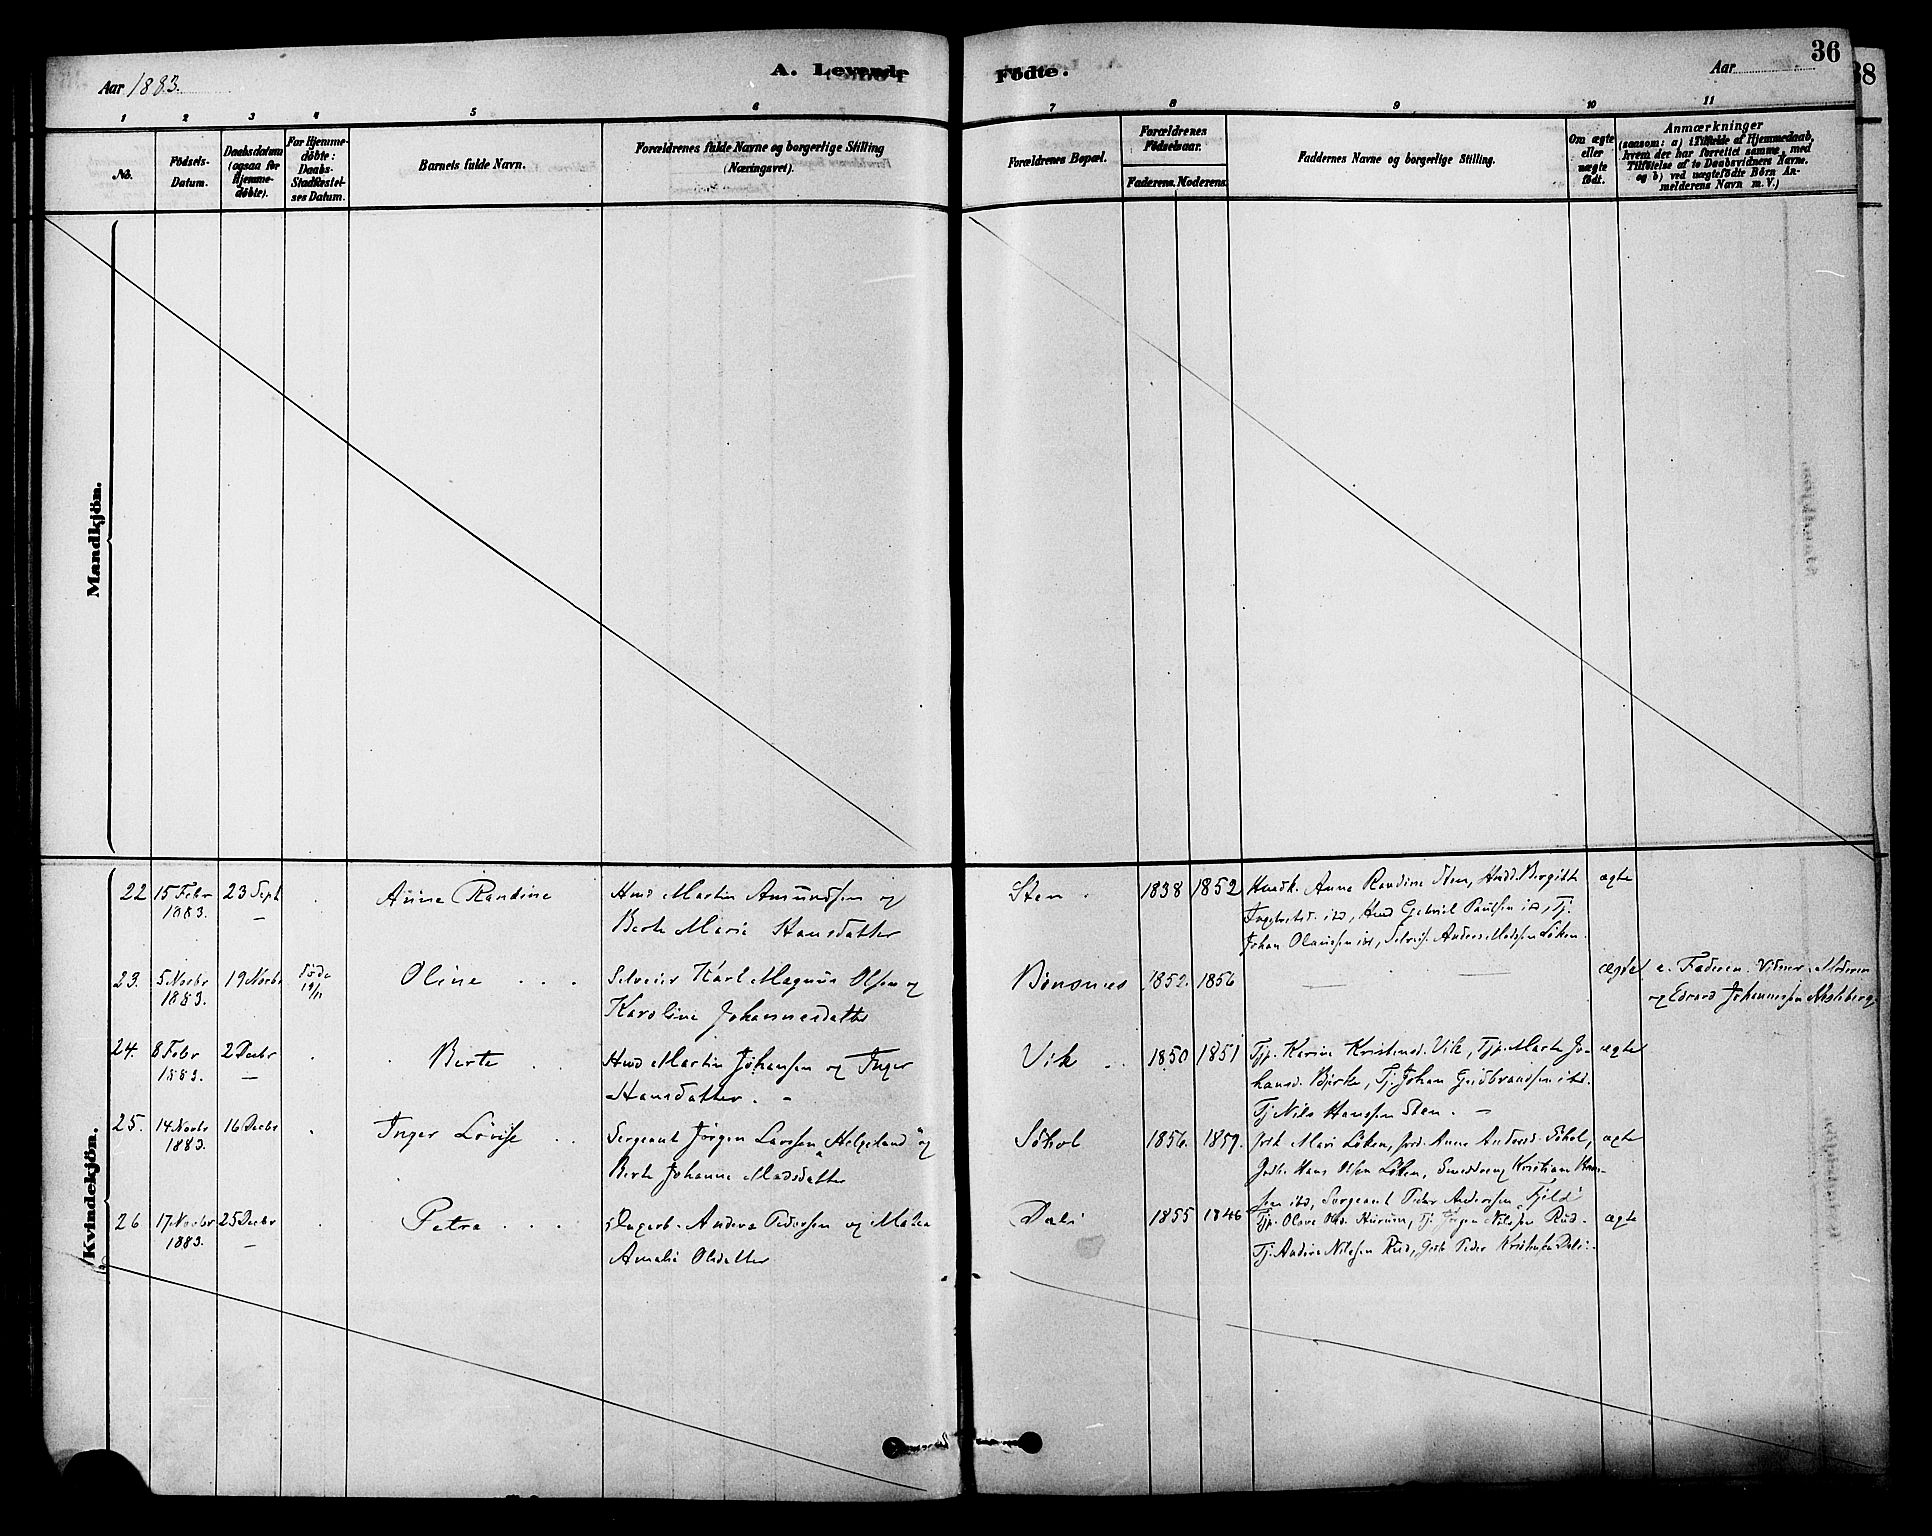 Aar 1883.
A. Levende
Födte.
Aar
36
38
1 2 3 4 5 6 7 8 9 10 11
No.
Födsels-
Datum.
Daabsdatum
(ogsaa for
Hjemme-
döbte).
For Hjemme-
döbte:
Daabs-
Stadfæstel-
ses Datum.
Barnets fulde Navn.
Forældrenes fulde Navne og borgerlige Stilling
(Næringsvei).
Forældrenes Bopæl.
Forældrenes
Födselsaar.
Faderens. Moderens.
Faddernes Navne og borgerlige Stilling.
Om ægte
eller
uægte
födt.
Anmærkninger
(saasom: a) i Tilfælde af Hjemmedaab,
hvem der har forrettet samme, med
Tilföielse af to Daabsvidners Navne.
og b) ved uægtefödte Börn An-
melderens Navn m. V.)
Mandkjön.
Kvindekjön.
22 15 Febr 1883. 23 Sept Anne Randine
Martin Amundsen og
Berte Marie Hansdatter
Sten 1838 1852
Anne Randine Sten, Bergitte
Gabriel Paulsen ibd, Tj.
Johan Olaussen ibd, Anders Madsen Löken.
ægte
23. 5 Novbr 1883. 19 Novbr Oline
Selveier Karl Magnus Olsen og
Karoline Johannesdatter
Bönsnes 1852. 1856
ægte
a. Faderen. Vidner: Moderen
og Edvard Johannessen
24. 8 Febr 1883. 2 Decbr Berte
Martin Johansen og Inger
Hansdatter.
Vik 1850 1851
Tjp. Karine Kristensd. Vik, Tjp. Marte Jo-
hansd. Bjerke, Tj. Johan Gudbrandsen ibd.
Tj. Nils Hanssen Sten.
ægte
25. 14 Novbr 1883. 16 Decbr Inger Lovise
Sergeant Jörgen Larssen "Helgeland" og
Berte Johanne Madsdatter
Söhol 1856. 1859.
Mari Löken, Anne Andersd. Söhol,
Hans Olsen Löken, Kristian
sen ibd, Sergeant Peder Anderssen Fjeld
ægte
26 17 Novbr 1883. 25 Decbr Petra
Andreas Pedersen og Malea
Amalie Olsdatter
Dæli 1855 1846
Tjp. Olave Olsd. Hurum, Tj. Jörgen Nilssen Rud.
Tj. Andreas Nilssen Rud, Peder Dæli.
ægte